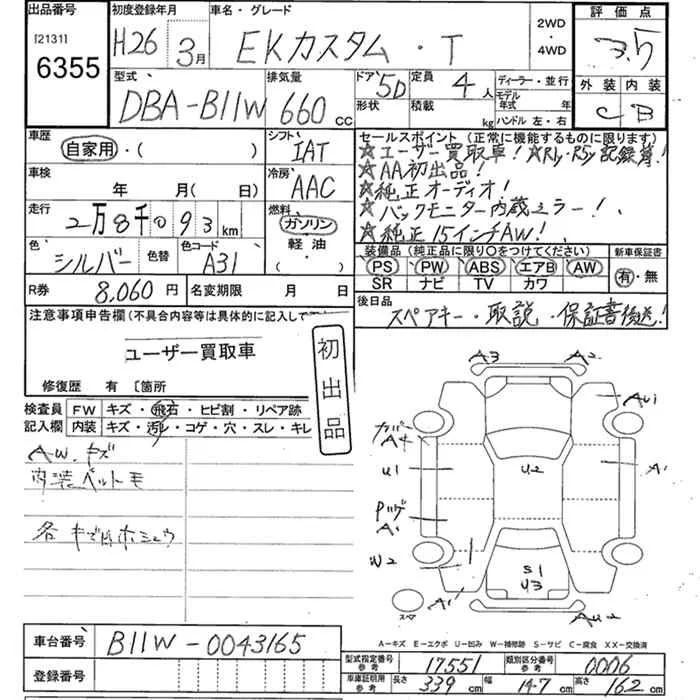 出品番号
[2131]
6355
初度登録年月
H26 3月
車名・グレード
EKカスタム・T
2WD
・
4WD
評価点
3.5
外装 内装
C B
型式
DBA-B11W
排気量
660 cc
ドア 5D
形状
定員 4人
積載 kg
ディーラー・並行
モデル年式 年
ハンドル 左・右
車歴
自家用・( )
シフト
IAT
車検
年 月( 日)
冷房
AAC
走行
2万8千093 km
燃料
ガソリン
軽油・
( )
色
シルバー
色替
色コード
A31
R券 8,060円
名変期限 月 日
セールスポイント(正常に機能するものに限ります)
☆ユーザー買取車! ☆R1y・R5y記録簿!
☆AA初出品!
☆純正オーディオ!
☆バックモニター内蔵ミラー!
☆純正15インチAW!
装備品(純正品に限り○をつけてください)
PS PW ABS エアB AW
SR ナビ TV カワ
新車保証書
有・無
後日品
スペアキー・取説・保証書後送!
注意事項申告欄(不具合内容等は具体的に記入して下
ユーザー買取車
修復歴 有〔箇所
初出品
検査員記入欄
FW キズ・飛石・ヒビ割・リペア跡
内装 キズ・汚レ・コゲ・穴・スレ・キレ
AW.キズ
内装ベルト毛
各キズ凹ホシュウ
A3 A2
AU1
カバー
A4
U1
U2
A1
A1
W2
S1
U3
A1
AU2
スペア
A-キズ E-エクボ U-凹み W-補修跡 S-サビ C-腐食 XX-交換済
車台番号 B11W-0043165
登録番号
型式指定番号参考 17551
類別区分番号参考 0006
車庫証明用参考 長さ 339 cm 幅 147 cm 高さ 162 cm